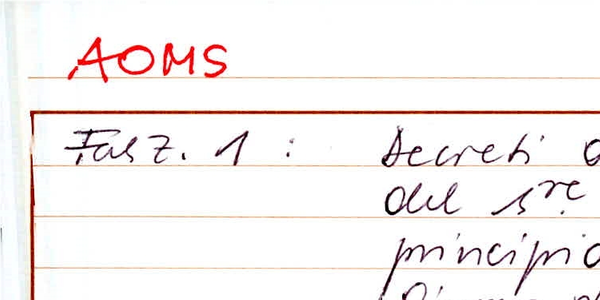 AOMS
Fasz. 1 : Decreti
del sre.
principio